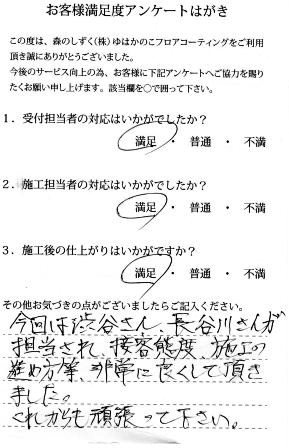 お客様満足度アンケートはがき
この度は、森のしずく(株)ゆはかのこフロアコーティングをご利用
頂き誠にありがとうございました。
今後のサービス向上の為、お客様に下記アンケートへご協力を賜り
たくお願い申し上げます。該当欄を○で囲って下さい。
1．受付担当者の対応はいかがでしたか？
満足 ・ 普通 ・ 不満
2．施工担当者の対応はいかがでしたか？
満足 ・ 普通 ・ 不満
3．施工後の仕上がりはいかがですか？
満足 ・ 普通 ・ 不満
その他お気づきの点がございましたらご記入ください。
今回は渋谷さん、長谷川さんが
担当され、接客態度、施工の
進め方等、非常に良くして頂き
ました。
これからも頑張って下さい。